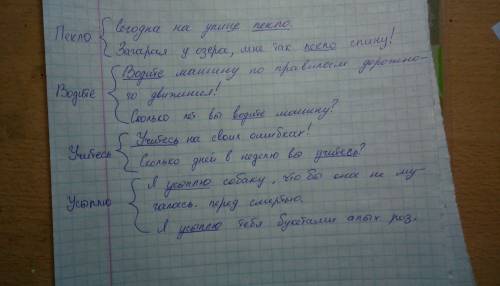 Пекло { Сегодня на улице пекло.
Загорая у озера, мне так пекло спину!
Водите { Водите машину по правилам дорожно-
го движения!
Сколько лет вы водите машину?
Учитесь { Учитесь на своих ошибках!
Сколько дней в неделю вы учитесь?
Усыплю { Я усыплю собаку, что бы она не му-
чалась перед смертью.
Я усыплю тебя букетами алых роз.